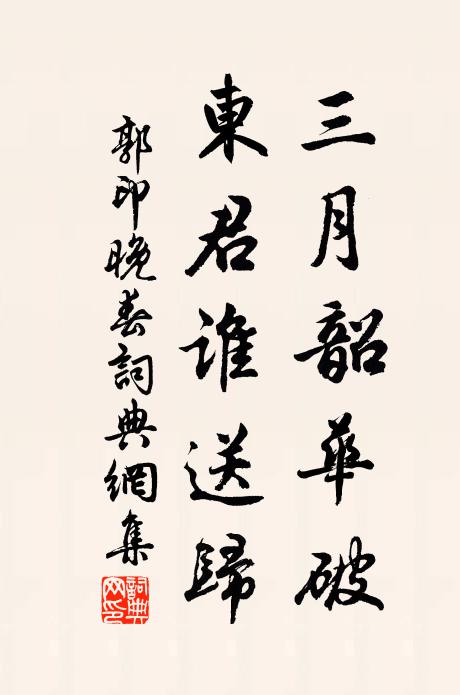 三月韶華破
東君誰送歸
郭印晚春詞典網集
詞典網印